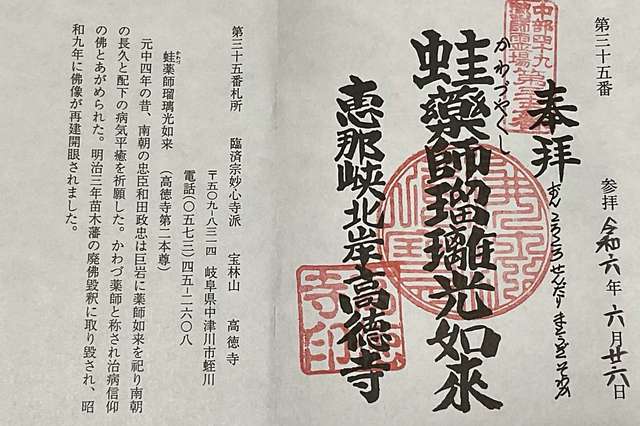 第三十五番
参拝 令和六年六月廿六日
奉拝
おん ころころ せんだり まとうぎ そわか
中部四十九
薬師霊場第三十五番
かわづやくし
蛙藥師瑠璃光如来
恵那峡北岸高徳寺
第三十五番札所 臨済宗妙心寺派 宝林山 高徳寺
〒五〇九-八三二四 岐阜県中津川市蛭川
電話(〇五七三)四五-二六〇八
かわづ
蛙薬師瑠璃光如来 (高徳寺第二本尊)
元中四年の昔、南朝の忠臣和田政忠は巨岩に薬師如来を祀り南朝
の長久と配下の病気平癒を祈願した。かわづ薬師と称され治病信仰
の佛とあがめられた。明治三年苗木藩の廃佛毀釈に取り毀され、昭
和九年に佛像が再建開眼されました。